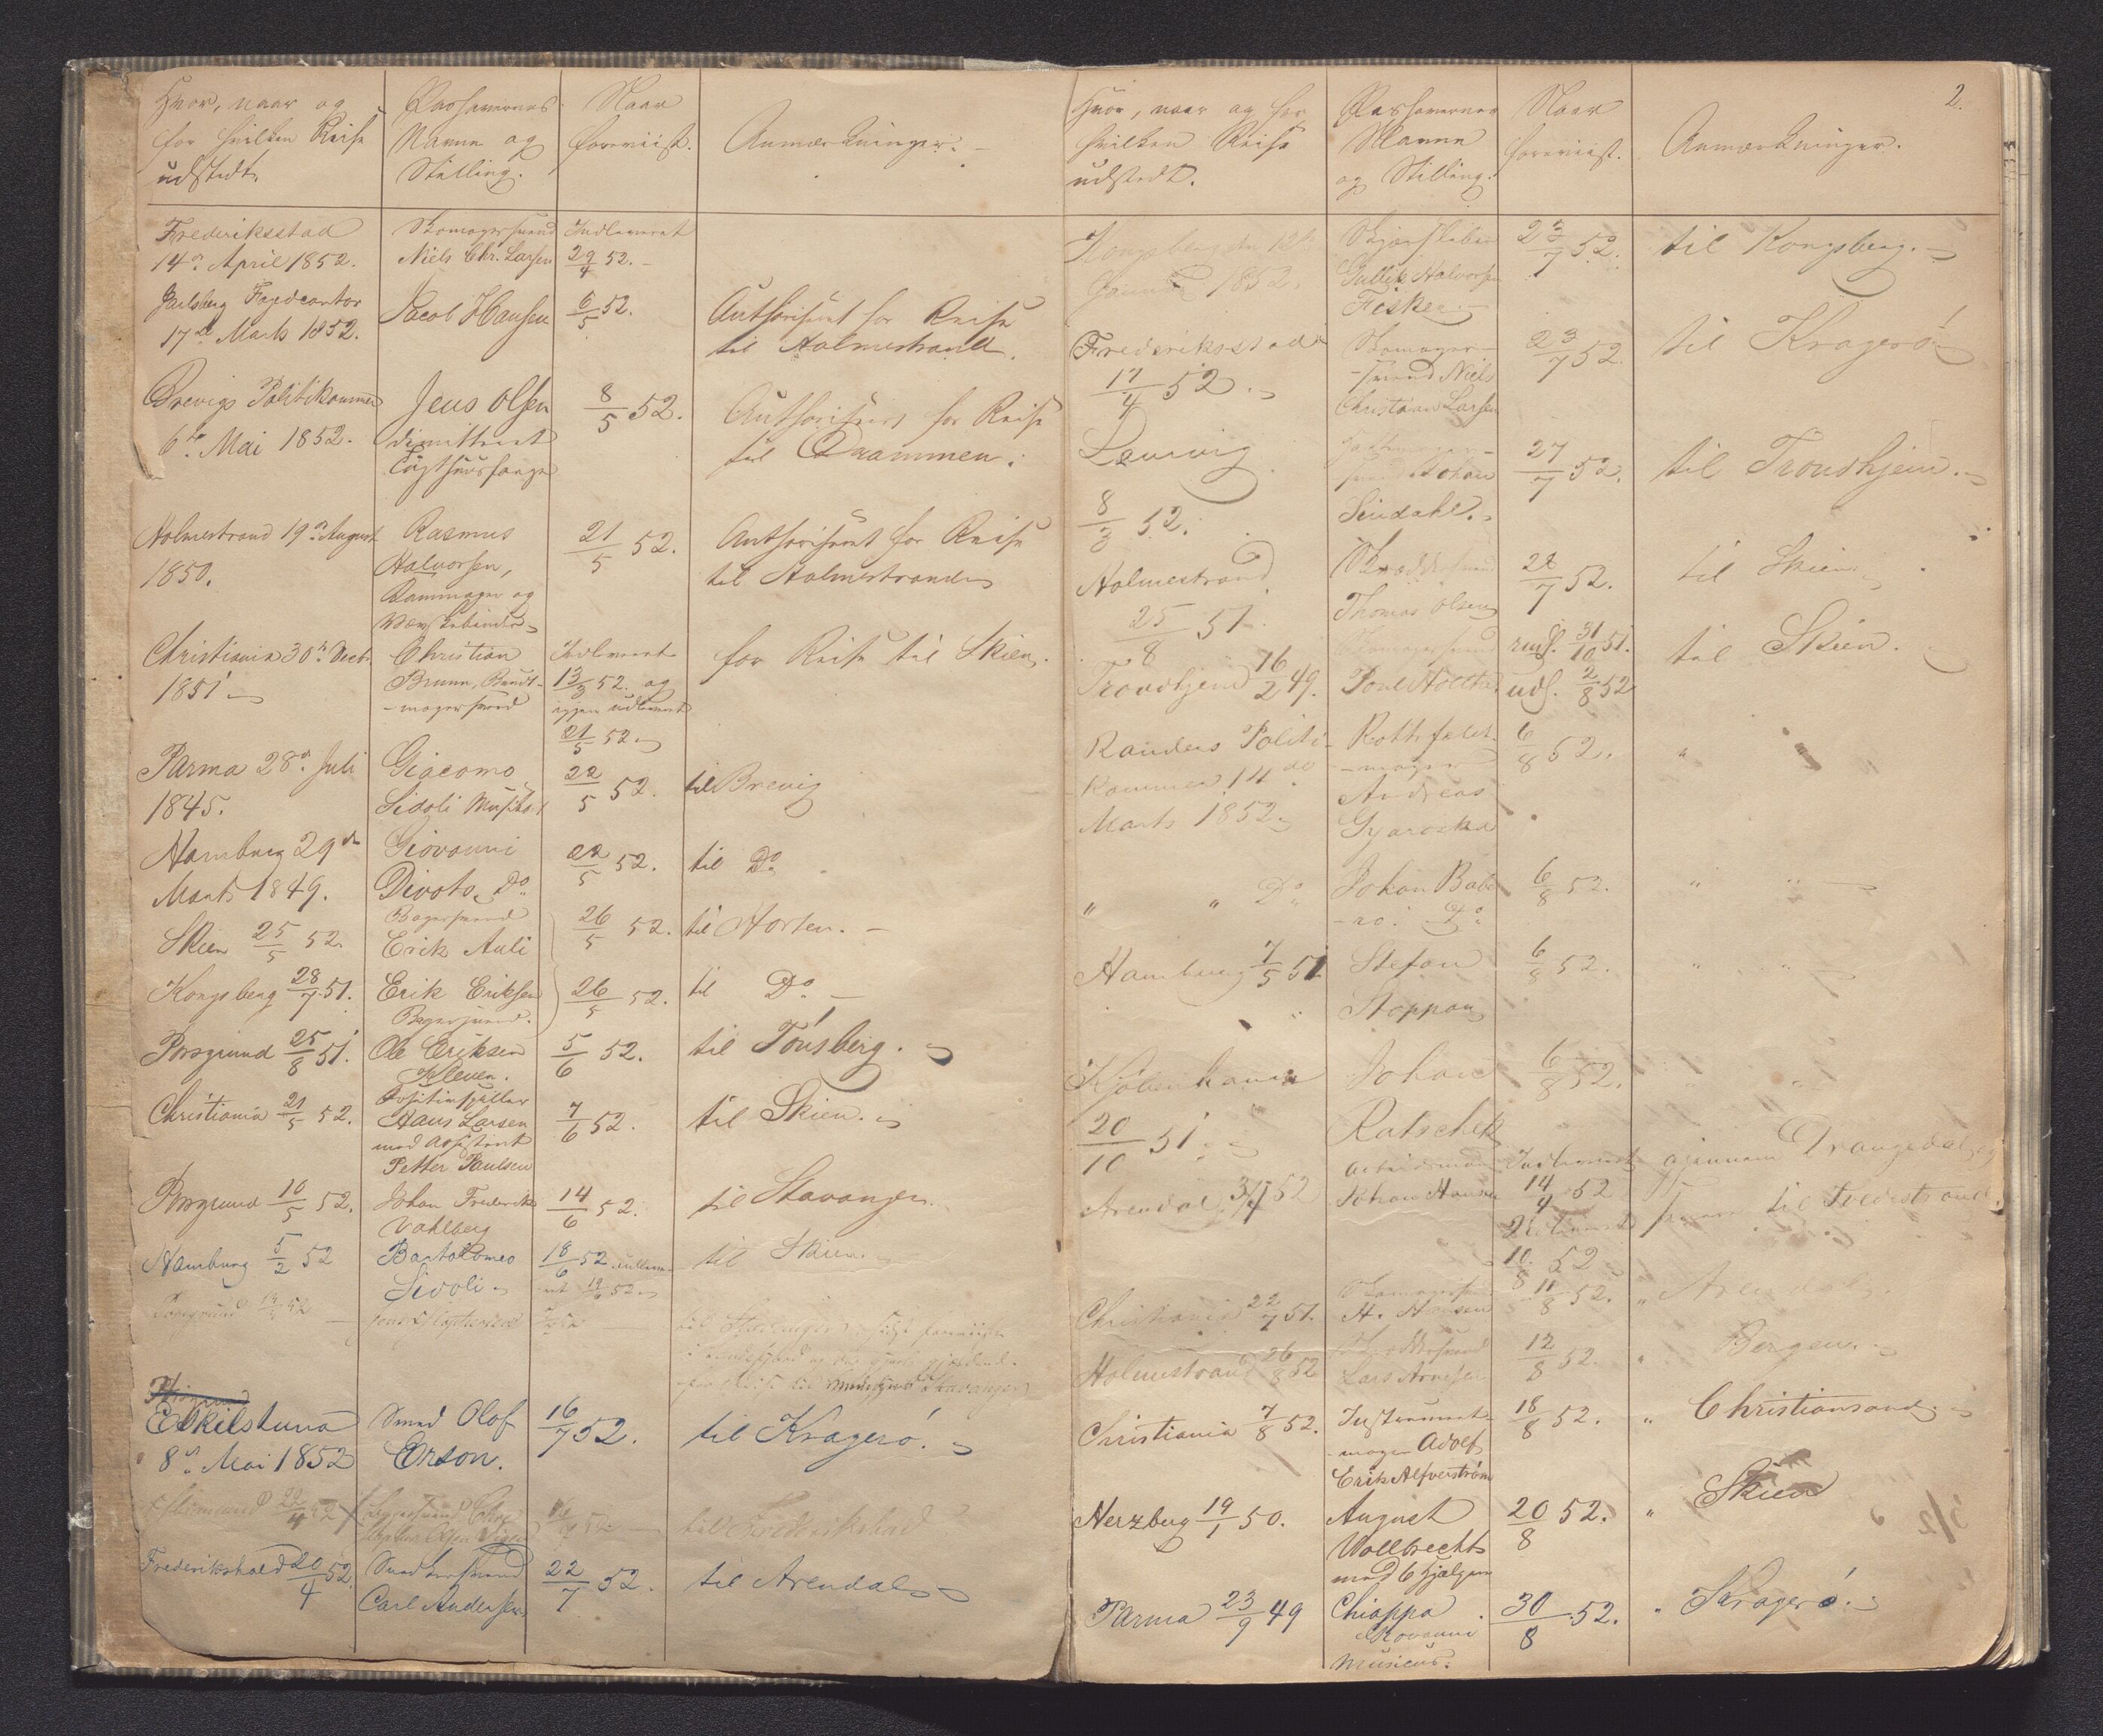 Hvor, naar og
for hvilken Reise
udstedt.
Passhavernes
Navne og
Stilling.
Naar
foreviist.
Anmærkninger.
Frederiksstad
14de April 1852.
Skomagersvend
Niels Chr. Larsen
Indleveret
29/4 52.
Jarlsberg Fogedcontor
17de Marts 1852.
Jacob Hansen
6/5 52.
Authoriseret for Reise
til Holmestrand.
Brevigs Politikammer
6te Mai 1852.
Jens Olsen
dimitteret
Tugthuusfange
8/5 52.
Authoriseret for Reise
til Drammen.
Holmestrand 19de August
1850.
Rasmus
Halvorsen,
Kammager og
Vævskebinder
21/5 52.
Authoriseret for Reise
til Holmestrand
Christiania 30te Decbr.
1851
Christian
Brunn, Bundt-
-magersvend
Indleveret
13/3 52. og
igjen udleveret
21/5 52.
for Reise til Skien.
Parma 28de Juli
1845.
Giacomo
Sidoli Musikus
22/5 52.
til Brevig
Hamburg 29de
Marts 1849.
Giovanni
Divoto. Do
22/5 52.
til Do
Skien 25/5 52.
Bagersvend
Erik Auli
26/5 52.
til Horten.
Kongsberg 28/7 51.
Erik Eriksen
Bagersvend.
26/5 52.
til Do
Porsgrund 25/8 51.
Ole Eriksen
Kleven.
5/6 52.
til Tönsberg.
Christiania 21/5 52.
Positivspiller
Hans Larsen
med Assistent
Petter Paulsen
7/6 52.
til Skien.
Porsgrund 10/5 52.
Johan Frederik
Vahlberg
14/6 52.
til Stavanger.
Hamburg 5/2 52
Bartolomeo
Sidoli
18/6 52
til Skien.
Porsgrund
til Stavanger
for Reise til Stavanger
Eskilstuna
8de Mai 1852
Smed Olof
Erson.
16/7 52.
til Kragerö.
22/4 52
til Frederikshald
Frederikshald 20/4 52.
Snedkersvend
Carl Andersen
22/7 52.
til Arendal
2.
Hvor, naar og for
hvilken Reise
udstedt.
Passhavernes
Navne
og Stilling.
Naar
foreviist.
Anmærkninger.
Kongsberg den 12te
Januar 1852.
Skjærsliber
Gullik Halvorsen
Fiske
23/7 52.
til Kongsberg.
Frederiksstad
17/4 52.
Skomager-
-svend Niels
Christian Larsen
23/7 52.
til Kragerö
Laurvig
8/3 52.
Johan
Lindahl.
27/7 52.
til Trondhjem.
Holmestrand
25/8 51.
Skræddersvend
Thomas Olsen
28/7 52.
til Skien
Trondhjem 16/2 49.
Skomagersvend
31/10 51.
udl. 2/8 52
til Skien.
Randers Politi-
kammer 14de
Marts 1852.
Rottefælde-
-mager
Andreas
Gyaroska
6/8 52.
" "
" " Do
Johan Babo
-ro. Do
6/8 52.
" "
Hamburg 7/5 51
Stefan
Stoppan
6/8 52.
" "
Kjöbenhavn
20/10 51.
Johan
Ratschek
6/8 52.
" "
Arendal 3/4 52
Arbeidsmand
Johan Hansen
Indleveret
14/4 52
Udleveret
10/8 52
gjennem Drangedal
til Tvedestrand.
Christiania 22/7 51.
Skomagersvend
H. Hansen
11/8 52.
" Arendal.
Holmestrand 26/8 52
Skræddersvend
Lars Arnesen
12/8 52.
" Bergen.
Christiania 7/8 52.
Instrument-
-mager Adolf
Erik Alfverström
18/8 52.
" Christiansand.
Herzberg 19/1 50.
August
Wollbrecht
med 6 Hjelpere
20/8 52.
" Skien
Parma 23/9 49
Chiappa
Giovanni
Musicus.
30/8 52.
" Kragerö.